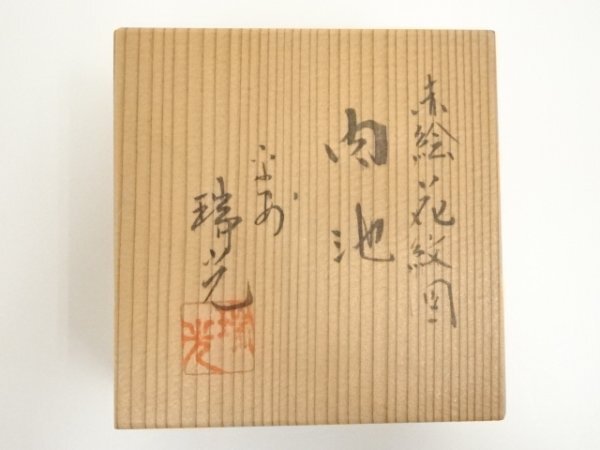 赤絵花紋図
肉池
平安
瑞光
瑞光